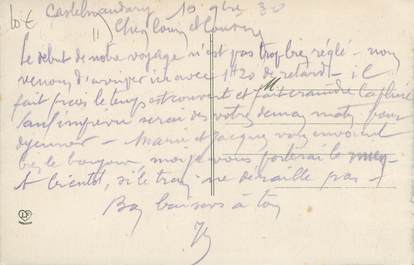 Castelnaudary 10 9bre 30
Cher Cousin et Cousine
Le début de notre voyage n'est pas trop bien réglé - nous
venons d'arriver ici avec 1h20 de retard - il
fait frais le temps est couvert et fait craindre la pluie
sauf imprévu serai des votres demain matin pour
dejeuner - Marie et Jacques vous envoient
bien le bonjour moi je vous porterai le mien
A bientot, si le train ne déraille pas -
Bons baisers à tous